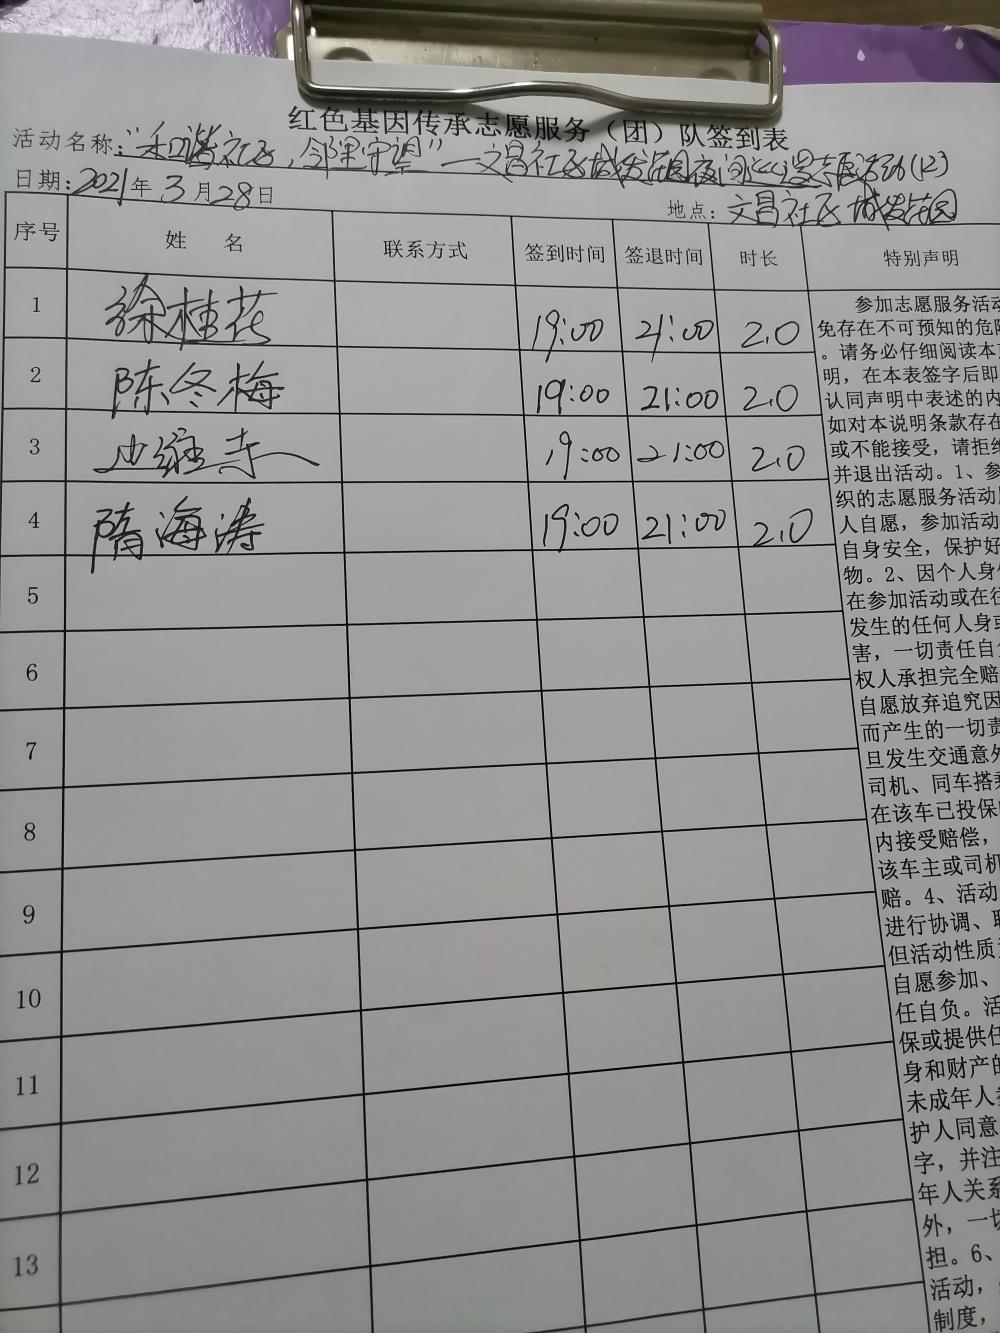 红色基因传承志愿服务（团）队签到表
活动名称："和谐社区，邻里守望"—文昌社区城发花园夜间巡逻志愿活动(12)
日期：2021年3月28日
地点：文昌社区城发花园
序号 姓 名 联系方式 签到时间 签退时间 时长 特别声明
1 徐桂花 19:00 21:00 2.0
2 陈冬梅 19:00 21:00 2.0
3 19:00 21:00 2.0
4 隋海涛 19:00 21:00 2.0
5
6
7
8
9
10
11
12
13
参加志愿服务活动
免存在不可预知的危
。请务必仔细阅读本
明，在本表签字后即
认同声明中表述的内
如对本说明条款存在
或不能接受，请拒
并退出活动。1、参
织的志愿服务活动
人自愿，参加活动
自身安全，保护好
物。2、因个人身
在参加活动或在往
发生的任何人身或
害，一切责任自
权人承担完全赔
自愿放弃追究因
而产生的一切责
旦发生交通意外
司机、同车搭乘
在该车已投保
内接受赔偿，
该车主或司机
赔。4、活动
进行协调、联
但活动性质
自愿参加、
任自负。活
保或提供任
身和财产的
未成年人参
护人同意
字，并注
年人关系
外，一切
担。6、
活动，
制度，